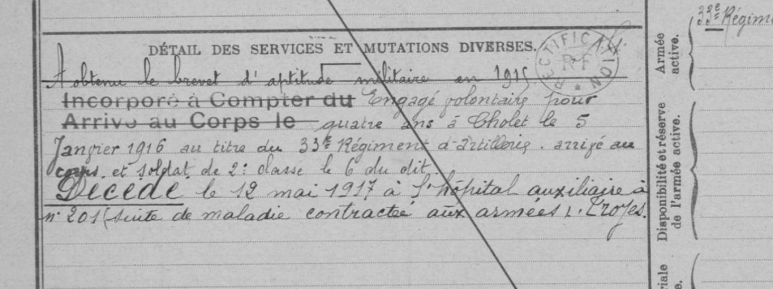 33e Régime
DÉTAIL DES SERVICES ET MUTATIONS DIVERSES.
RECTIFICATION
RF
A obtenu le brevet d'aptitude militaire en 1915
Incorporé à Compter du Engagé volontaire pour
Arrivé au Corps le quatre ans à Cholet le 5
Janvier 1916 au titre du 33e Régiment d'artillerie. arrivé au
corps et soldat de 2e classe le 6 du dit.
Décédé le 12 mai 1917 à l'hôpital auxiliaire à
n° 201 (suite de maladie contractée aux armées). Troyes.
Armée
active.
Disponibilité et réserve
de l'armée active.
riale
e.